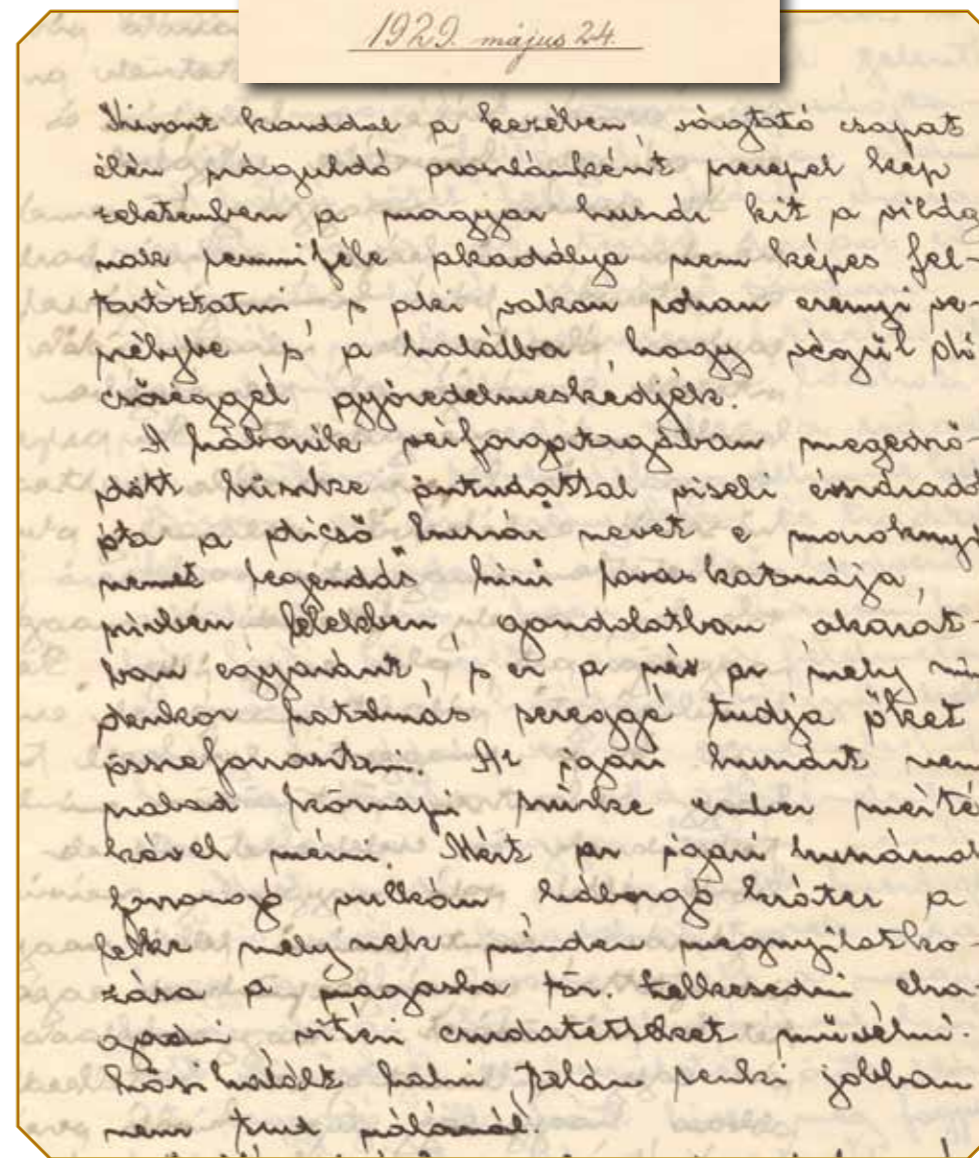 1929. május 24.
Kivont karddal a kezében, vágtató csapat
élén, száguldó oroslánként szerepel kép
zeletemben a magyar huszár kit a világ
nak semmiféle akadálya nem képes fel-
tartóztatni s aki vakon rohan ezernyi ve
szélybe s a halálba, hogy végül di
csőséggel győzedelmeskedjék.
A háborúk vérforgatagában megedző-
dött büszke öntudattal viseli évszázad
óta a dicső "huszár" nevet e maroknyi
nemzet legendás hírü lovas katonája,
szivben lélekben, gondolatban akarat-
ban egyaránt, s ez a név az mely min
denkor hatalmas sereggé tudja őket
összeforrasztani. Az igazi huszárt nem
szabad köznapi szürke ember mérté
kével mérni. Mert az igazi huszárnak
forrongó vulkán háborgó kráter a
lelke melynek minden megnyilatko-
zása a magasba tör. Lelkesedni elra-
gadni vitézi csudatetteket müvelni.
hősi halált halni talán senki jobban
nem tud nálánál.